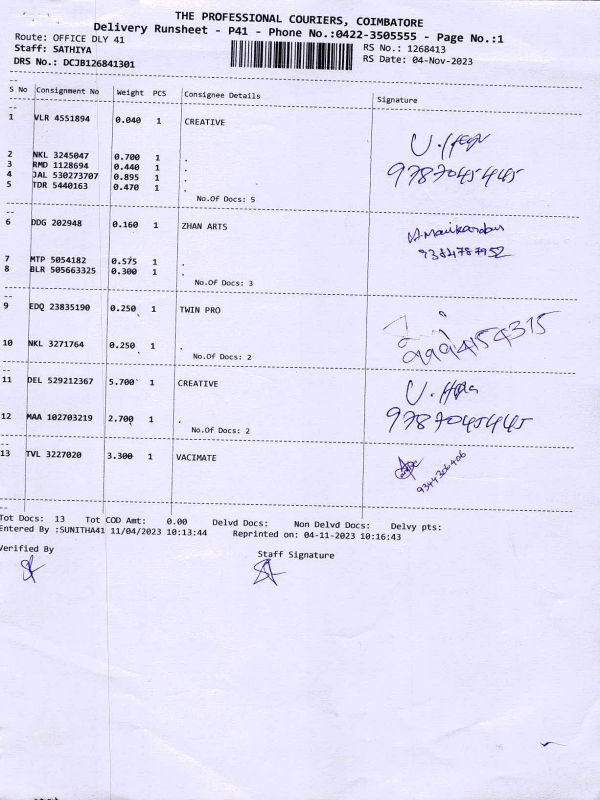 THE PROFESSIONAL COURIERS, COIMBATORE
Delivery Runsheet - P41 - Phone No.:0422-3505555 - Page No.:1
Route: OFFICE DLY 41 RS No.: 1268413
Staff: SATHIYA RS Date: 04-Nov-2023
DRS No.: DCJB126841301
S No Consignment No Weight PCS Consignee Details Signature
1 VLR 4551894 0.040 1 CREATIVE
2 NKL 3245047 0.700 1 .
3 RMD 1128694 0.440 1 .
4 JAL 530273707 0.895 1 . 9787045445
5 TDR 5440163 0.470 1 .
No.Of Docs: 5
6 DDG 202948 0.160 1 ZHAN ARTS
9384787952
7 MTP 5054182 0.575 1 .
8 BLR 505663325 0.300 1 .
No.Of Docs: 3
9 EDQ 23835190 0.250 1 TWIN PRO
9994154315
10 NKL 3271764 0.250 1 .
No.Of Docs: 2
11 DEL 529212367 5.700 1 CREATIVE
12 MAA 102703219 2.700 1 . 9787045445
No.Of Docs: 2
13 TVL 3227020 3.300 1 VACIMATE
9344306406
Tot Docs: 13 Tot COD Amt: 0.00 Delvd Docs: Non Delvd Docs: Delvy pts:
Entered By :SUNITHA41 11/04/2023 10:13:44 Reprinted on: 04-11-2023 10:16:43
Verified By Staff Signature